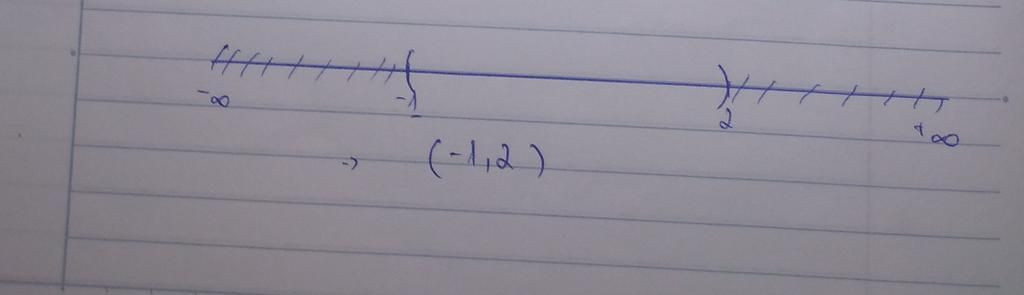 -∞ -1 2 +∞
→ (-1,2)